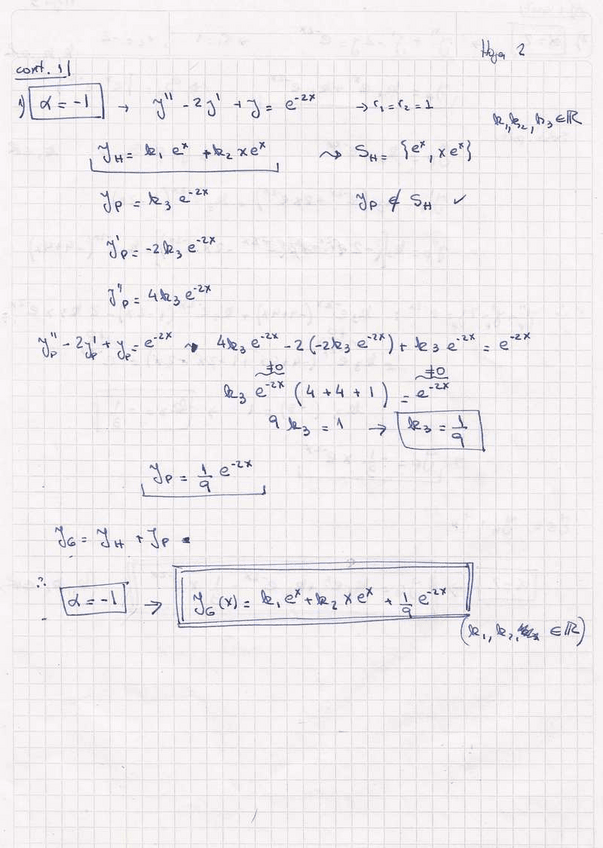 Hoja 2
cont. 1)
1) α = -1 → y'' - 2y' + y = e^{-2x} → r₁ = r₂ = 1
k₁, k₂, k₃ ∈ ℝ
y_H = k₁ e^x + k₂ x e^x ⇝ S_H = {e^x, x e^x}
y_P = k₃ e^{-2x} y_P ∉ S_H ✓
y'_P = -2k₃ e^{-2x}
y''_P = 4k₃ e^{-2x}
y''_P - 2y'_P + y_P = e^{-2x} ⇝ 4k₃ e^{-2x} - 2(-2k₃ e^{-2x}) + k₃ e^{-2x} = e^{-2x}
≠0 ≠0
k₃ e^{-2x} (4 + 4 + 1) = e^{-2x}
9 k₃ = 1 → k₃ = 1/9
y_P = 1/9 e^{-2x}
y_G = y_H + y_P
∴ α = -1 → y_G(x) = k₁ e^x + k₂ x e^x + 1/9 e^{-2x}
(k₁, k₂, ∈ ℝ)